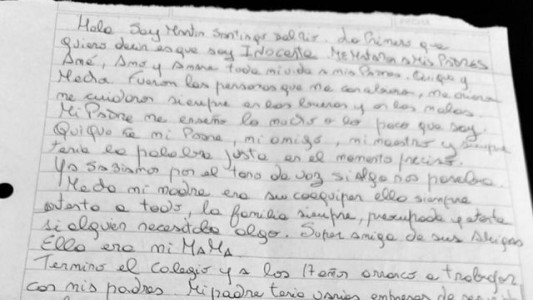 Hola Soy Martin Santiago del Rio. Lo Primero que
quiero decir es que soy INOCENTE ME MATARON A MIS PADRES
Amé, Amo y Amare toda mi vida a mis Padres. Quique y
Mecha. Fueron las personas que me me
me cuidaron siempre en las buenas y en las malas.
Mi Padre me enseño lo mucho o lo poco que soy.
Quique es mi Padre, mi amigo, mi maestro y siempre
tenia la palabra justa en el momento preciso.
Ya sabiamos por el tono de voz si algo nos pasaba.
Mecha mi madre era su coequiper ella siempre
atenta a todo, la familia siempre, preocupada y atenta
si alguien necesitaba algo. Super amiga de sus Amigas
Ella era mi MAMA.
Termino el Colegio y a los 17 años arranco a trabajar
con mis padres. Mi padre tenia varias empresas de